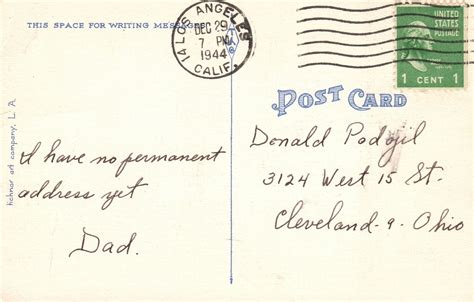 THIS SPACE FOR WRITING MESSAGES
LOS ANGELES
14
DEC 29
7 PM
1944
CALIF.
UNITED STATES
POSTAGE
1 CENT 1
POST CARD
tichnor art company, L. A.
I have no permanent
address yet
Dad.
Donald Podojil
3124 West 15 St.
Cleveland-9-Ohio